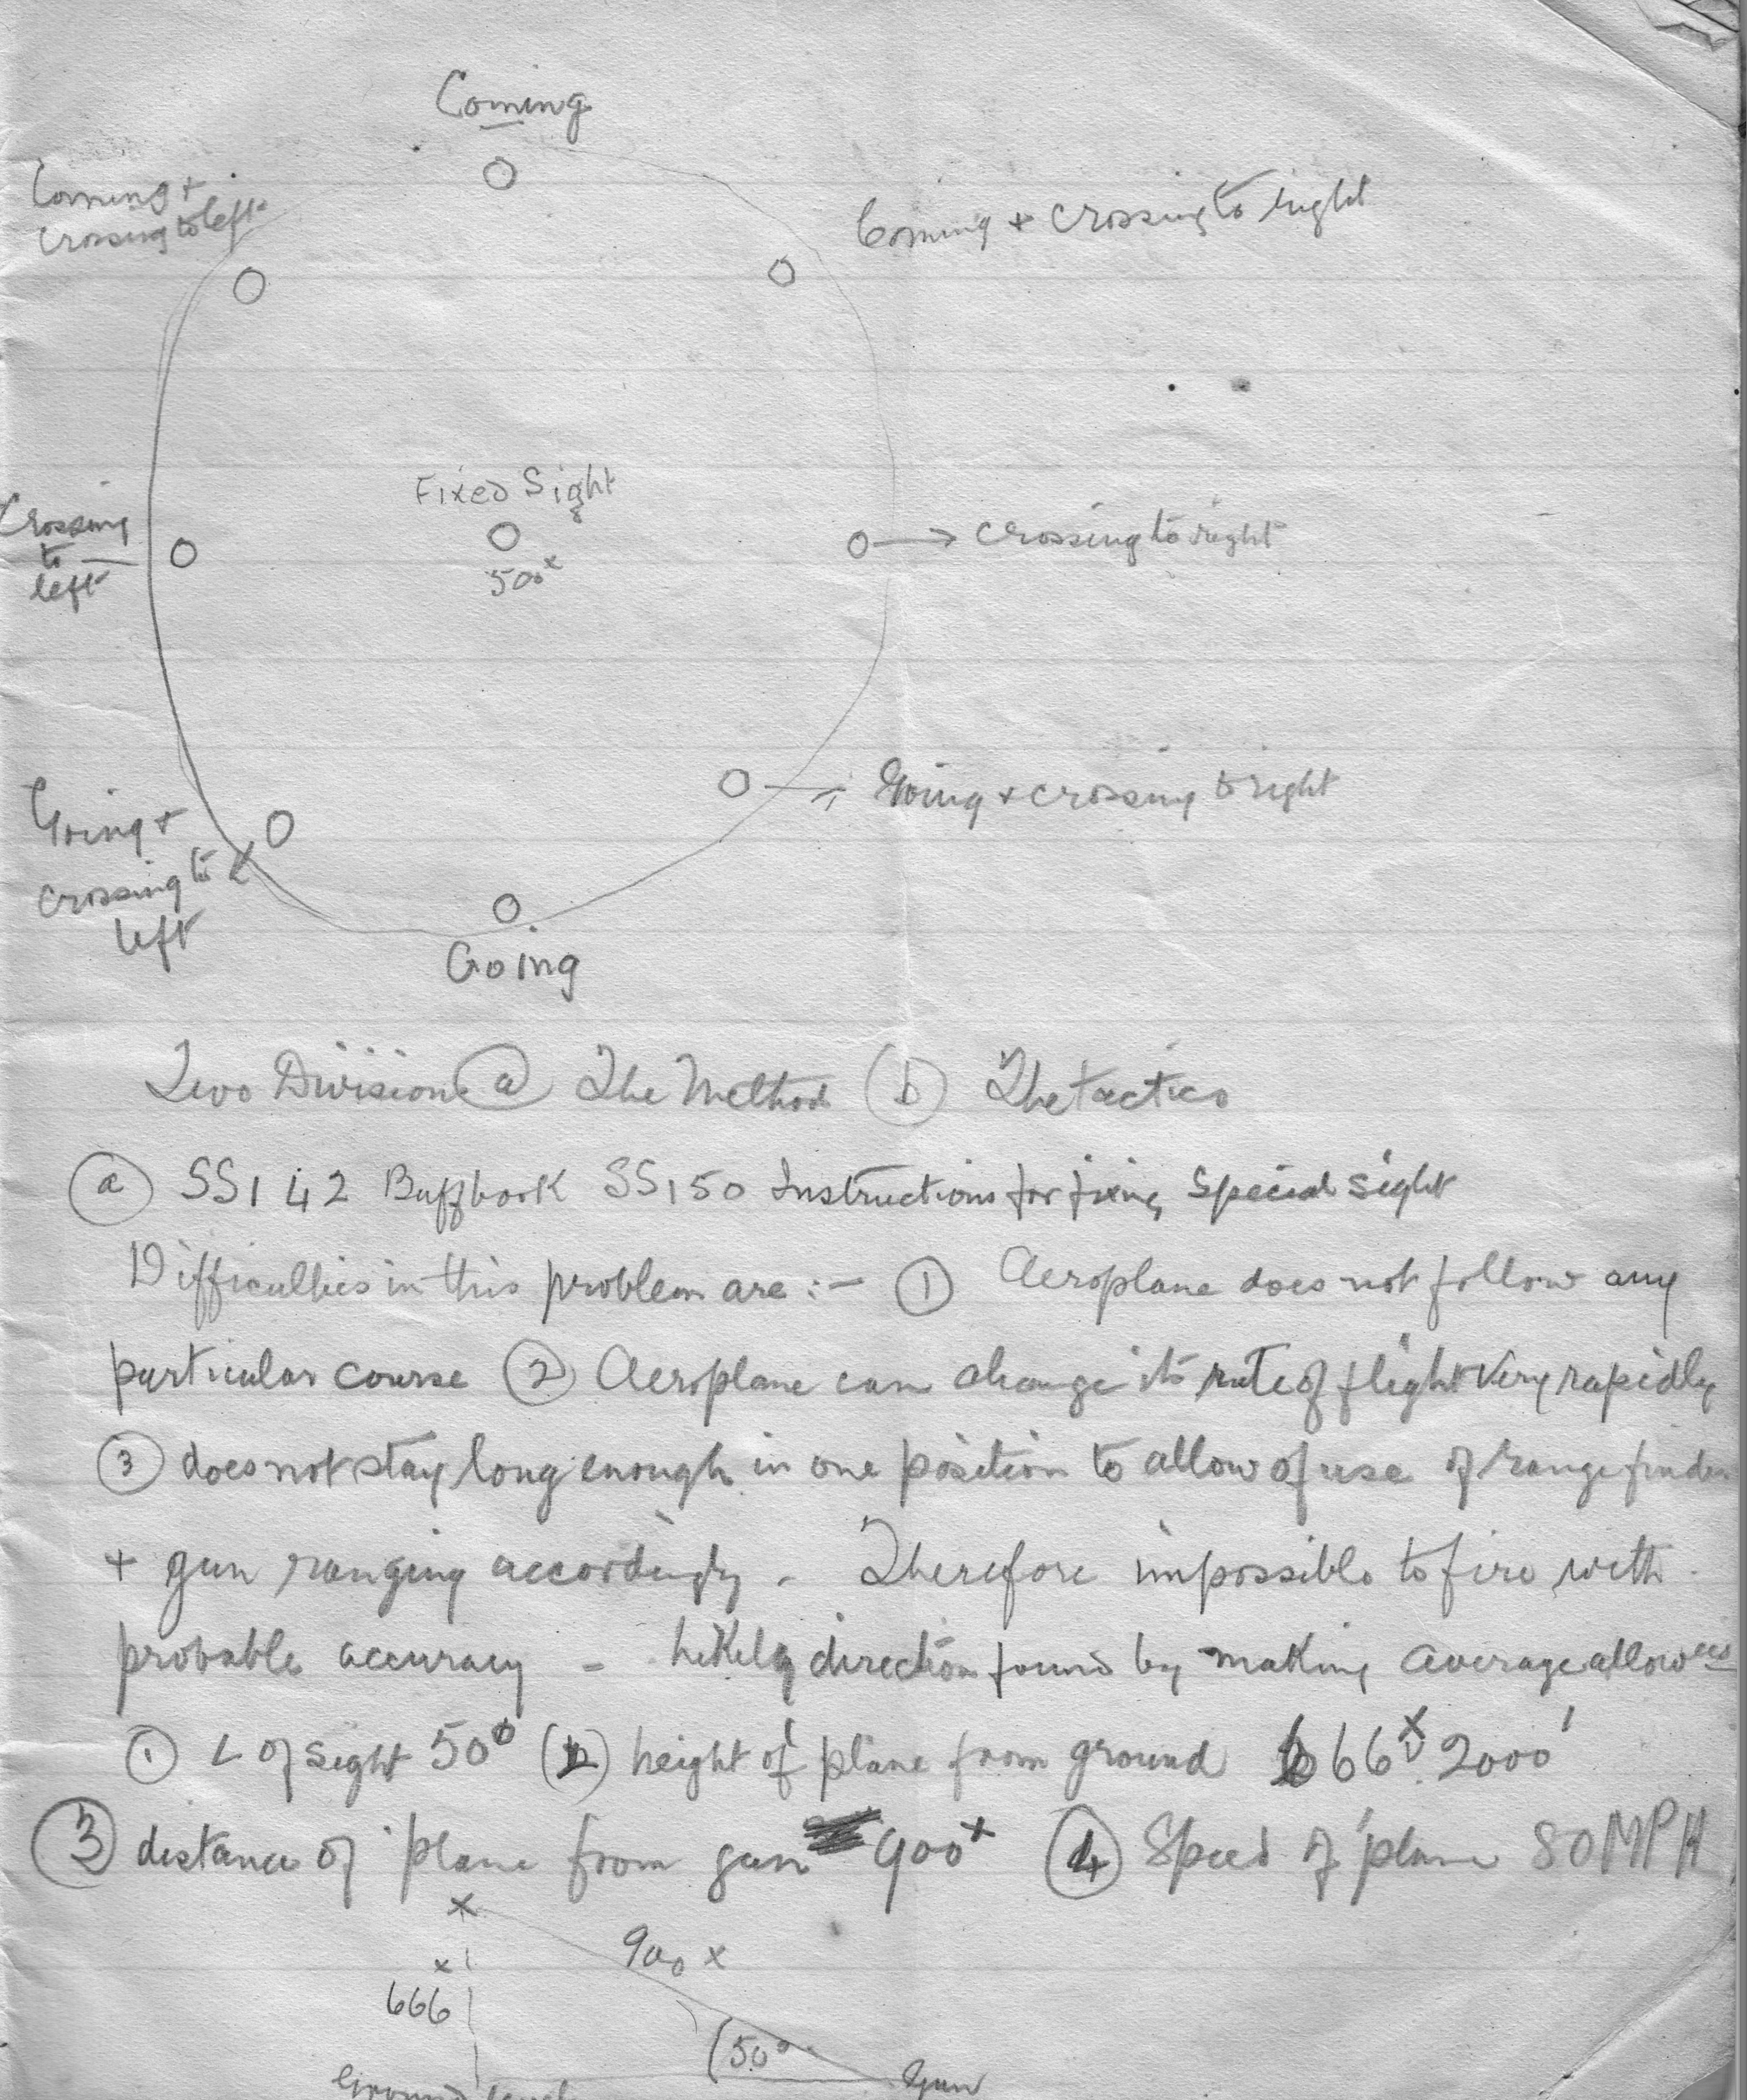 Coming
Coming +
crossing to left
Coming + crossing to right
Fixed Sight
500x
Crossing
to
left
crossing to right
Going + crossing to right
Going +
crossing to
left
Going
Two Divisions (a) The Method (b) The tactics
(a) SS142 Buffbook SS150 Instructions for fixing Special sight
Difficulties in this problem are :- (1) Aeroplane does not follow any
particular course (2) Aeroplane can change its rate of flight very rapidly
(3) does not stay long enough in one position to allow of use of rangefinder
+ gun ranging accordingly - Therefore impossible to fire with
probable accuracy - Likely direction found by making average allowces
(1) L of sight 50° (2) height of plane from ground 666x 2000'
(3) distance of plane from gun 900x (4) Speed of plane 80 MPH
x
900 x
x
666
50°
Ground level
Gun